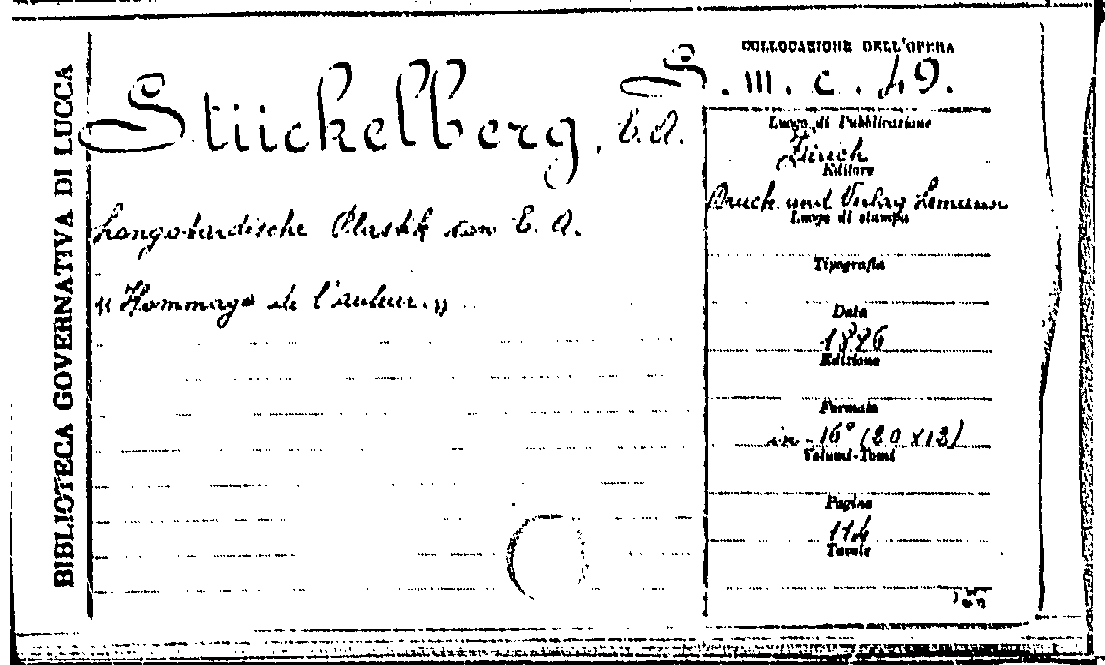 BIBLIOTECA GOVERNATIVA DI LUCCA
Stückelberg, E. A.
Longobardische Plastik von E. A.
«Hommage de l'auteur.»
COLLOCAZIONE DELL'OPERA
S. m. c. 49.
Luogo di Pubblicazione
Zürich
Editore
Druck und Verlag
Luogo di stampa
Tipografia
Data
1896
Edizione
Formato
in-16° (20 x 13)
Volumi-Tomi
Pagine
114
Tavole